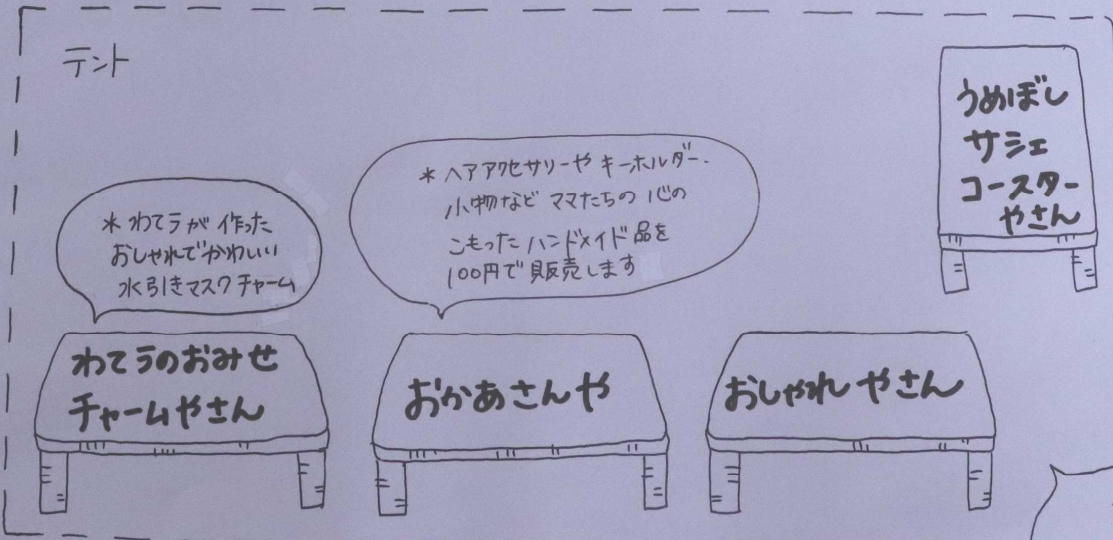 テント
うめぼし
サシェ
コースター
やさん
*わてラが作った
おしゃれでかわいい
水引きマスクチャーム
*ヘアアクセサリーやキーホルダー、
小物などママたちの心の
こもったハンドメイド品を
100円で販売します
わてラのおみせ
チャームやさん
おかあさんや
おしゃれやさん